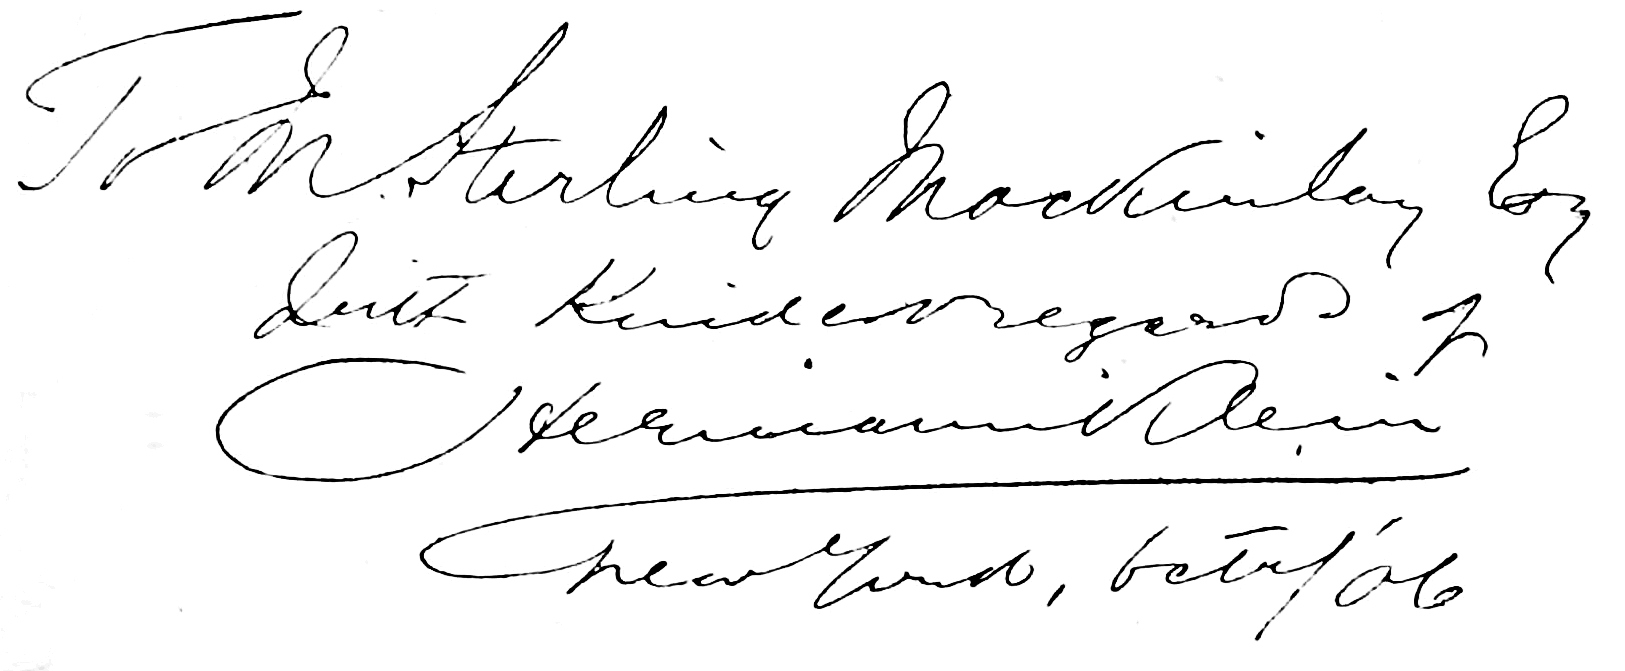 To M. Sterling Mackinlay Esq
with Kindest regards of
Hermann Klein
New York, Octr/06